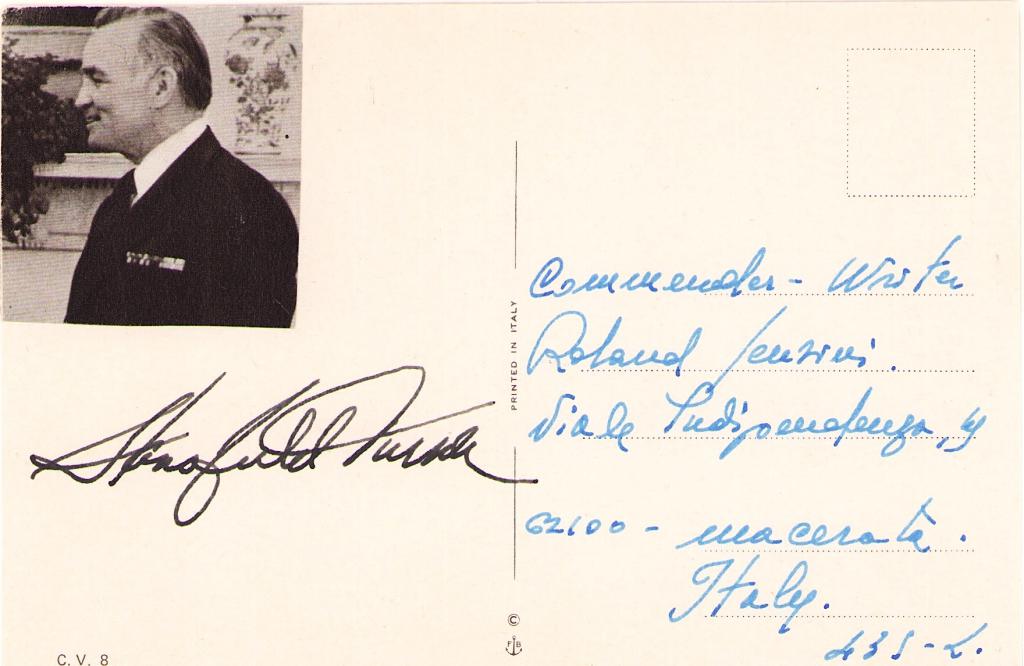 Stansfield Turner
Commender - Writer
Roland Jensini.
Viale Indipendenza,
62100 - macerata.
Italy.
PRINTED IN ITALY
©
F B
C. V. 8